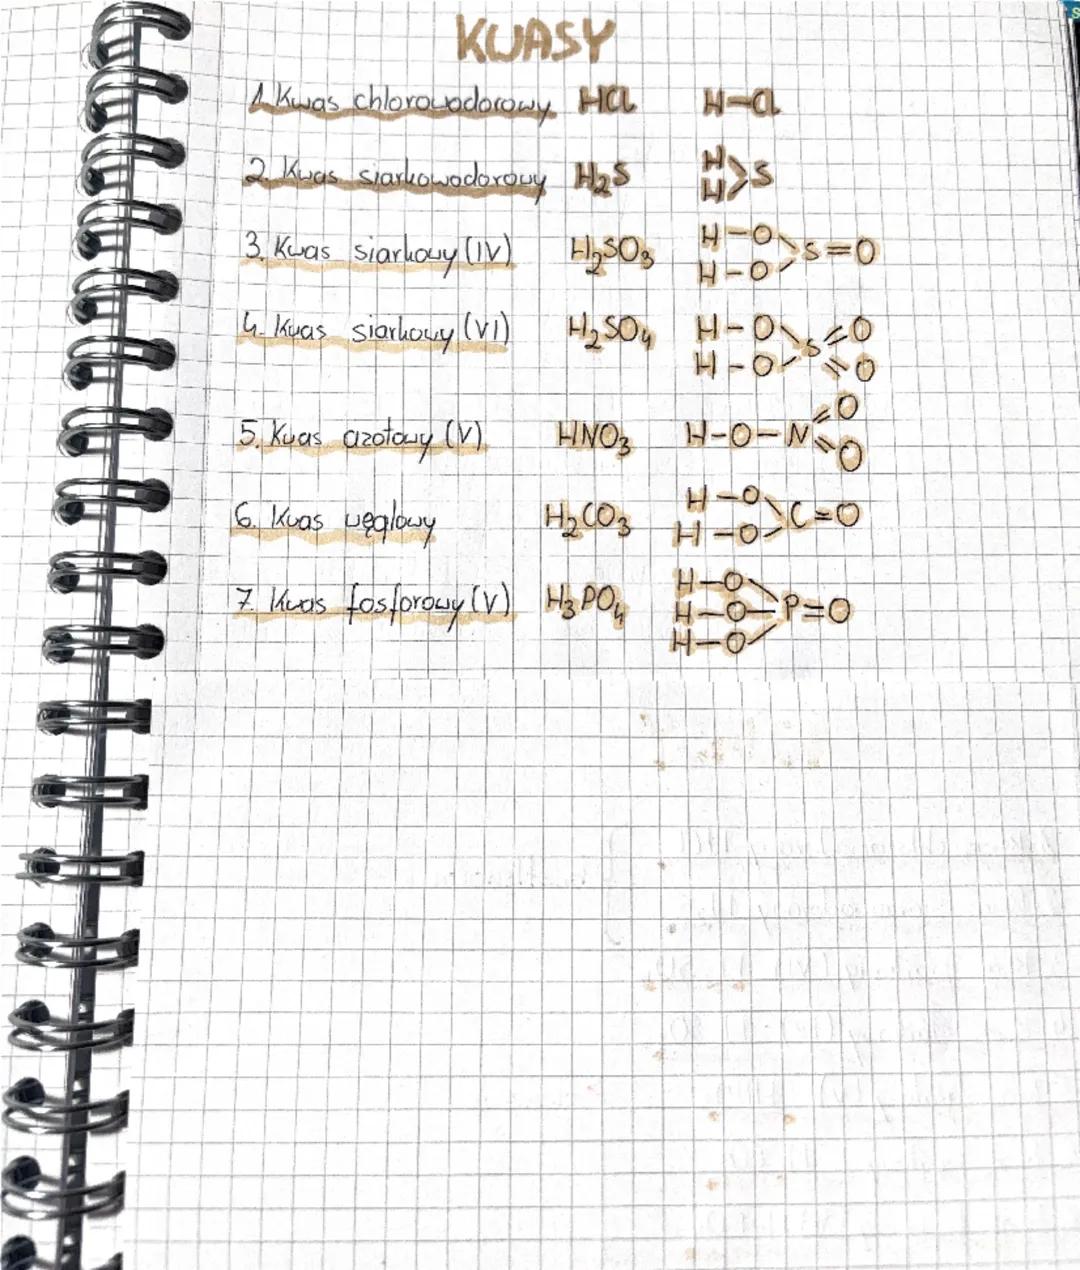 KWASY
1. Kwas chlorowodorowy HCl H-Cl
2. Kwas siarkowodorowy H₂S H H > S
3. Kwas siarkowy (IV) H₂SO₃ H-O H-O > S=O
4. Kwas siarkowy (VI) H₂SO₄ H-O H-O > S =O =O
5. Kwas azotowy (V) HNO₃ H-O-N =O =O
6. Kwas węglowy H₂CO₃ H-O H-O > C=O
7. Kwas fosforowy (V) H₃PO₄ H-O H-O H-O > P=O